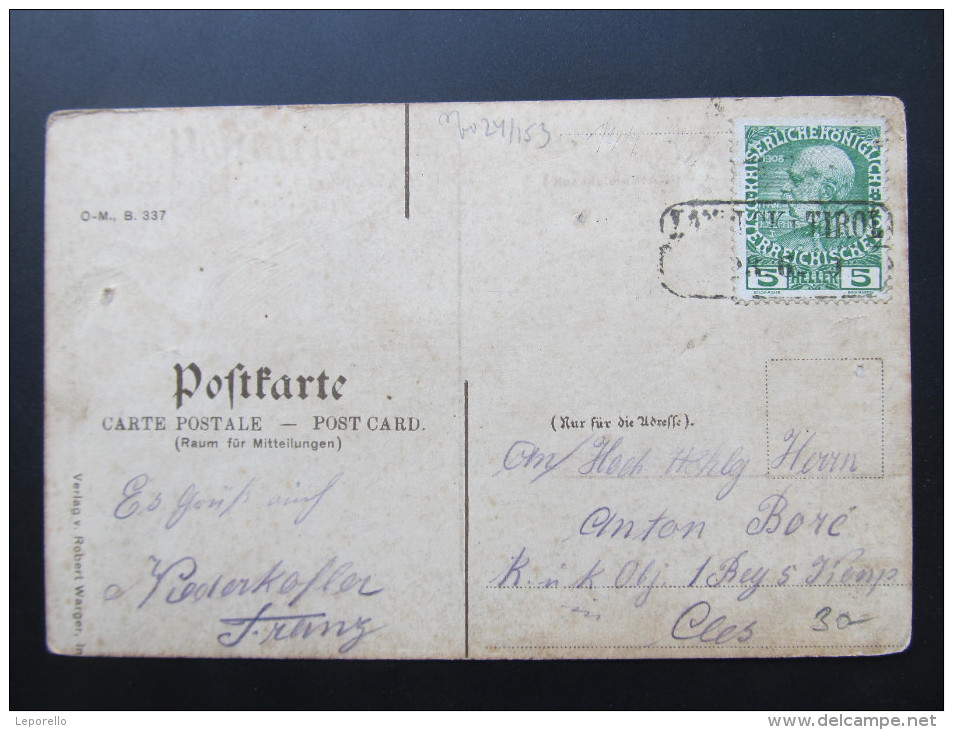 24/153
O-M., B. 337
KAISERLICHE KÖNIGLICHE
1908
ÖSTERREICHISCHE
TIROL
5 HELLER 5
Postkarte
CARTE POSTALE — POST CARD.
(Raum für Mitteilungen)
(Nur für die Adresse).
An Hoch Herrn
Anton Boré
K. u k Obj. 1 Reg 5 Komp
in
Cles 30
Es Grüß euch
Niederkofler
Franz
Verlag v. Robert Warger, In
Leporello
www.delcampe.net